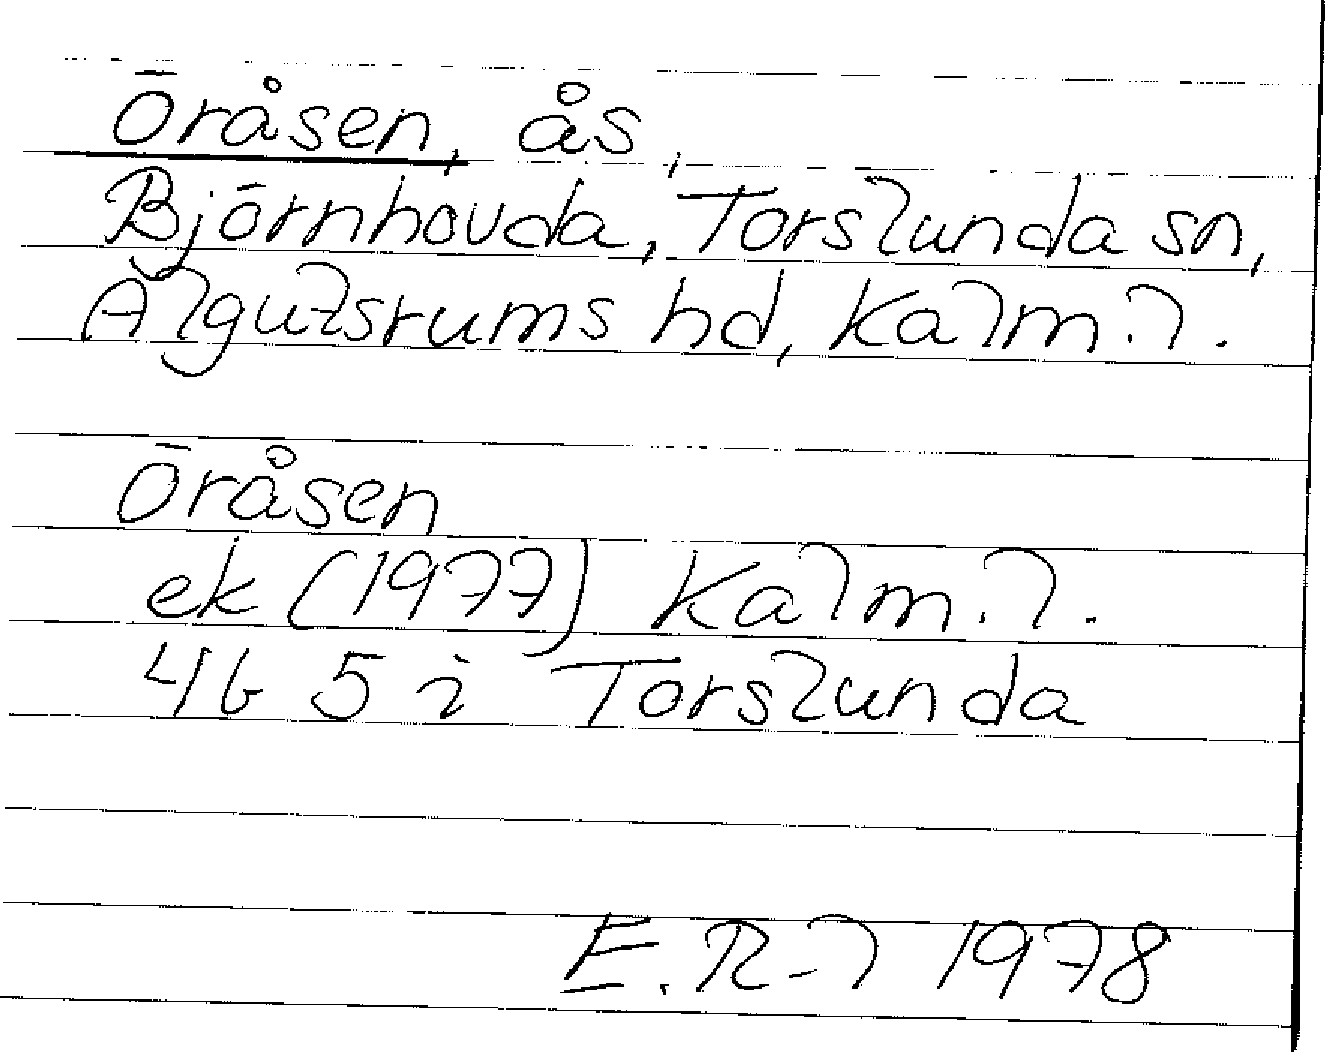 Öråsen, ås,
Björnhovda, Torslunda sn,
Algutsrums hd, Kalm. l.
Öråsen
ek (1977) Kalm. l.
4G 5 i Torslunda
E. R-l 1978